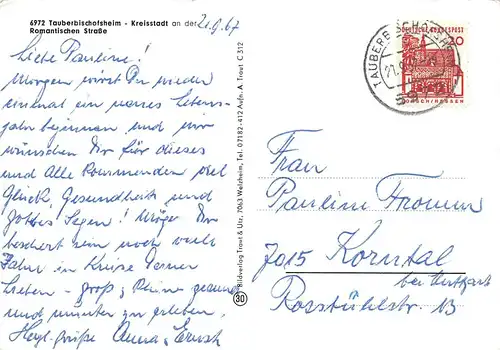 6972 Tauberbischofsheim - Kreisstadt an der
Romantischen Straße
21.9.67
Liebe Pauline!
Morgen wirst Du wieder
einmal ein neues Lebens-
jahr beginnen und wir
wünschen Dir für dieses
und alle Kommenden viel
Glück, Gesundheit und
Gottes Segen! Möge Dir
beschert sein noch viele
Jahre im Kreise Deiner
Lieben - groß u. klein gesund
und munter zu erleben.
Herzl. Grüße Anna u. Ernst
Bildverlag Traut & Utz, 7063 Welzheim, Tel. 07182-412 Aufn. A. Traut C 312
30
TAUBERBISCHOFSHEIM
DEUTSCHE BUNDESPOST
20
LORSCH/HESSEN
Frau
Pauline Fromm
7015 Korntal
bei Stuttgart
Rosstühlstr. 13